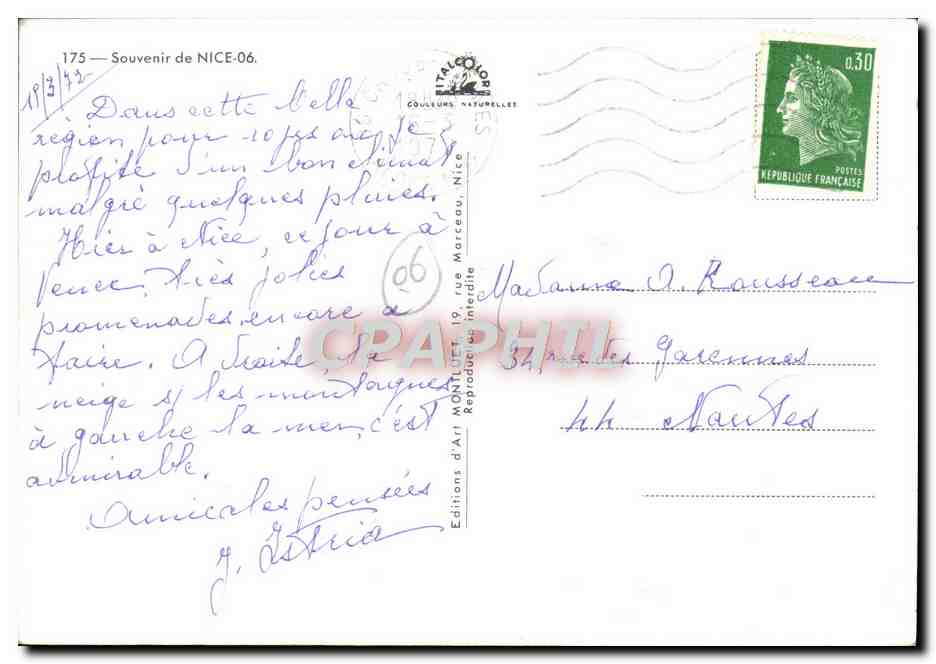 175 — Souvenir de NICE-06.
19/3/72
Dans cette belle
région pour 10 jrs où je
profite d'un bon climat
malgré quelques pluies.
Hier à Nice, ce jour à
Vence, très jolies
promenades, encore à
faire. A droite, la
neige s/ les montagnes
à gauche la mer, c'est
admirable.
Amicales pensées
J. Istria
06
ITALCOLOR
COULEURS NATURELLES
Editions d'Art MONTLUET, 19, rue Marceau, Nice
Reproduction interdite
0,30
POSTES
REPUBLIQUE FRANÇAISE
Madame A. Rousseau
34, rue des Garennes
44 Nantes
CPAPHIL